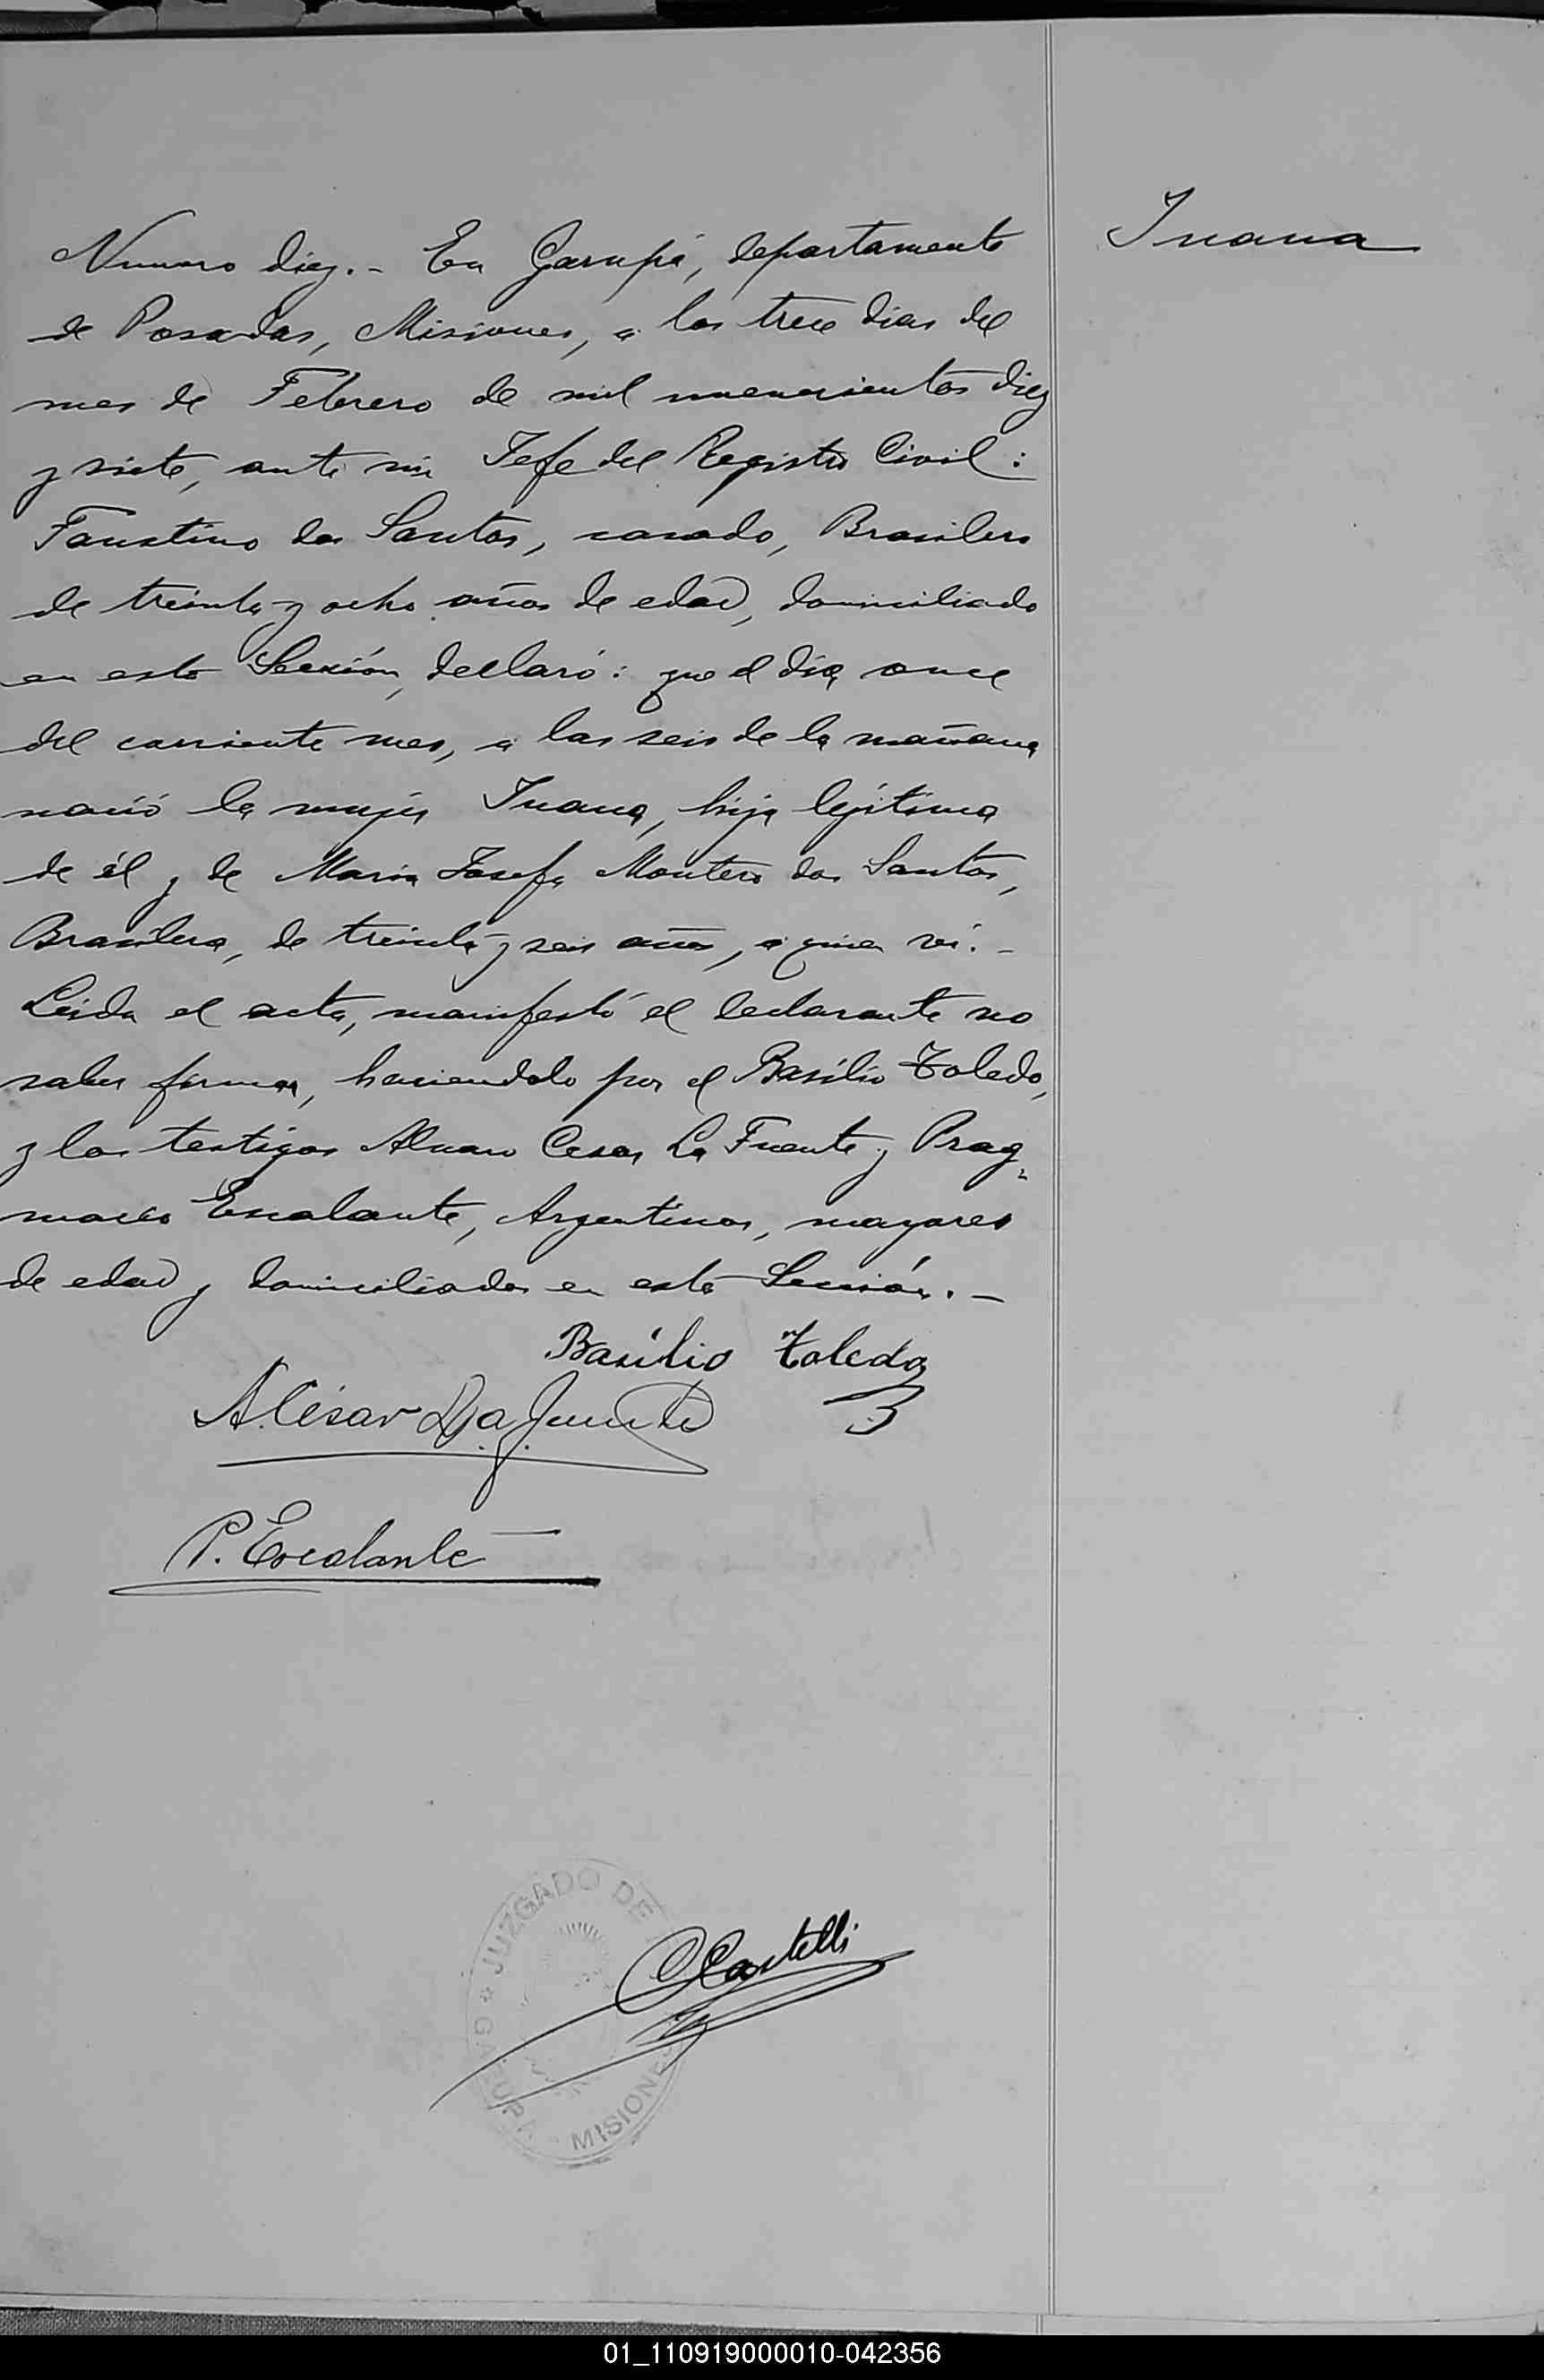 Juana
Numero diez.- En Garupá, departamento
de Posadas, Misiones, a los trece dias del
mes de Febrero de mil novecientos diez
y siete, ante mi Jefe del Registro Civil:
Faustino dos Santos, casado, Brasilero
de treinta y ocho años de edad, domiciliado
en esta Sección, declaró: que el dia once
del corriente mes, a las seis de la mañana
nació la mujer Juana, hija legítima
de él y de Maria Josefa Montero dos Santos,
Brasilera, de treinta y seis años, a quien vi.-
Leida el acta, manifestó el declarante no
saber firmar, haciendolo por el Basilio Toledo,
y los testigos Alvaro Cesar La Fuente y Prag-
maceo Escalante, Argentinos, mayores
de edad y domiciliados en esta Sección.-
Basilio Toledo
A. César La Fuente
P. Escalante
JUZGADO DE
GARUPA
MISIONES
C Castelli
01_110919000010-042356